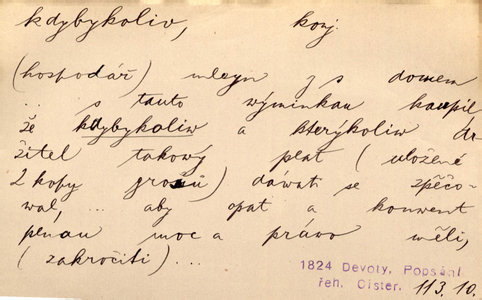 kdybykoliv, konj.
(hospodář) mleyn z s domem
... s tauto wýminkau kaupil,
že kdybykoliw a kterýkoliw dr-
žitel takowý plat (uložené
2 kopy grošů) dáwati se zpěčo-
wal, ... aby opat a konwent
plnau moc a práwo měli,
(zakročiti) ...
1824 Devoty, Popsání
řeh. Cister. 113.10.